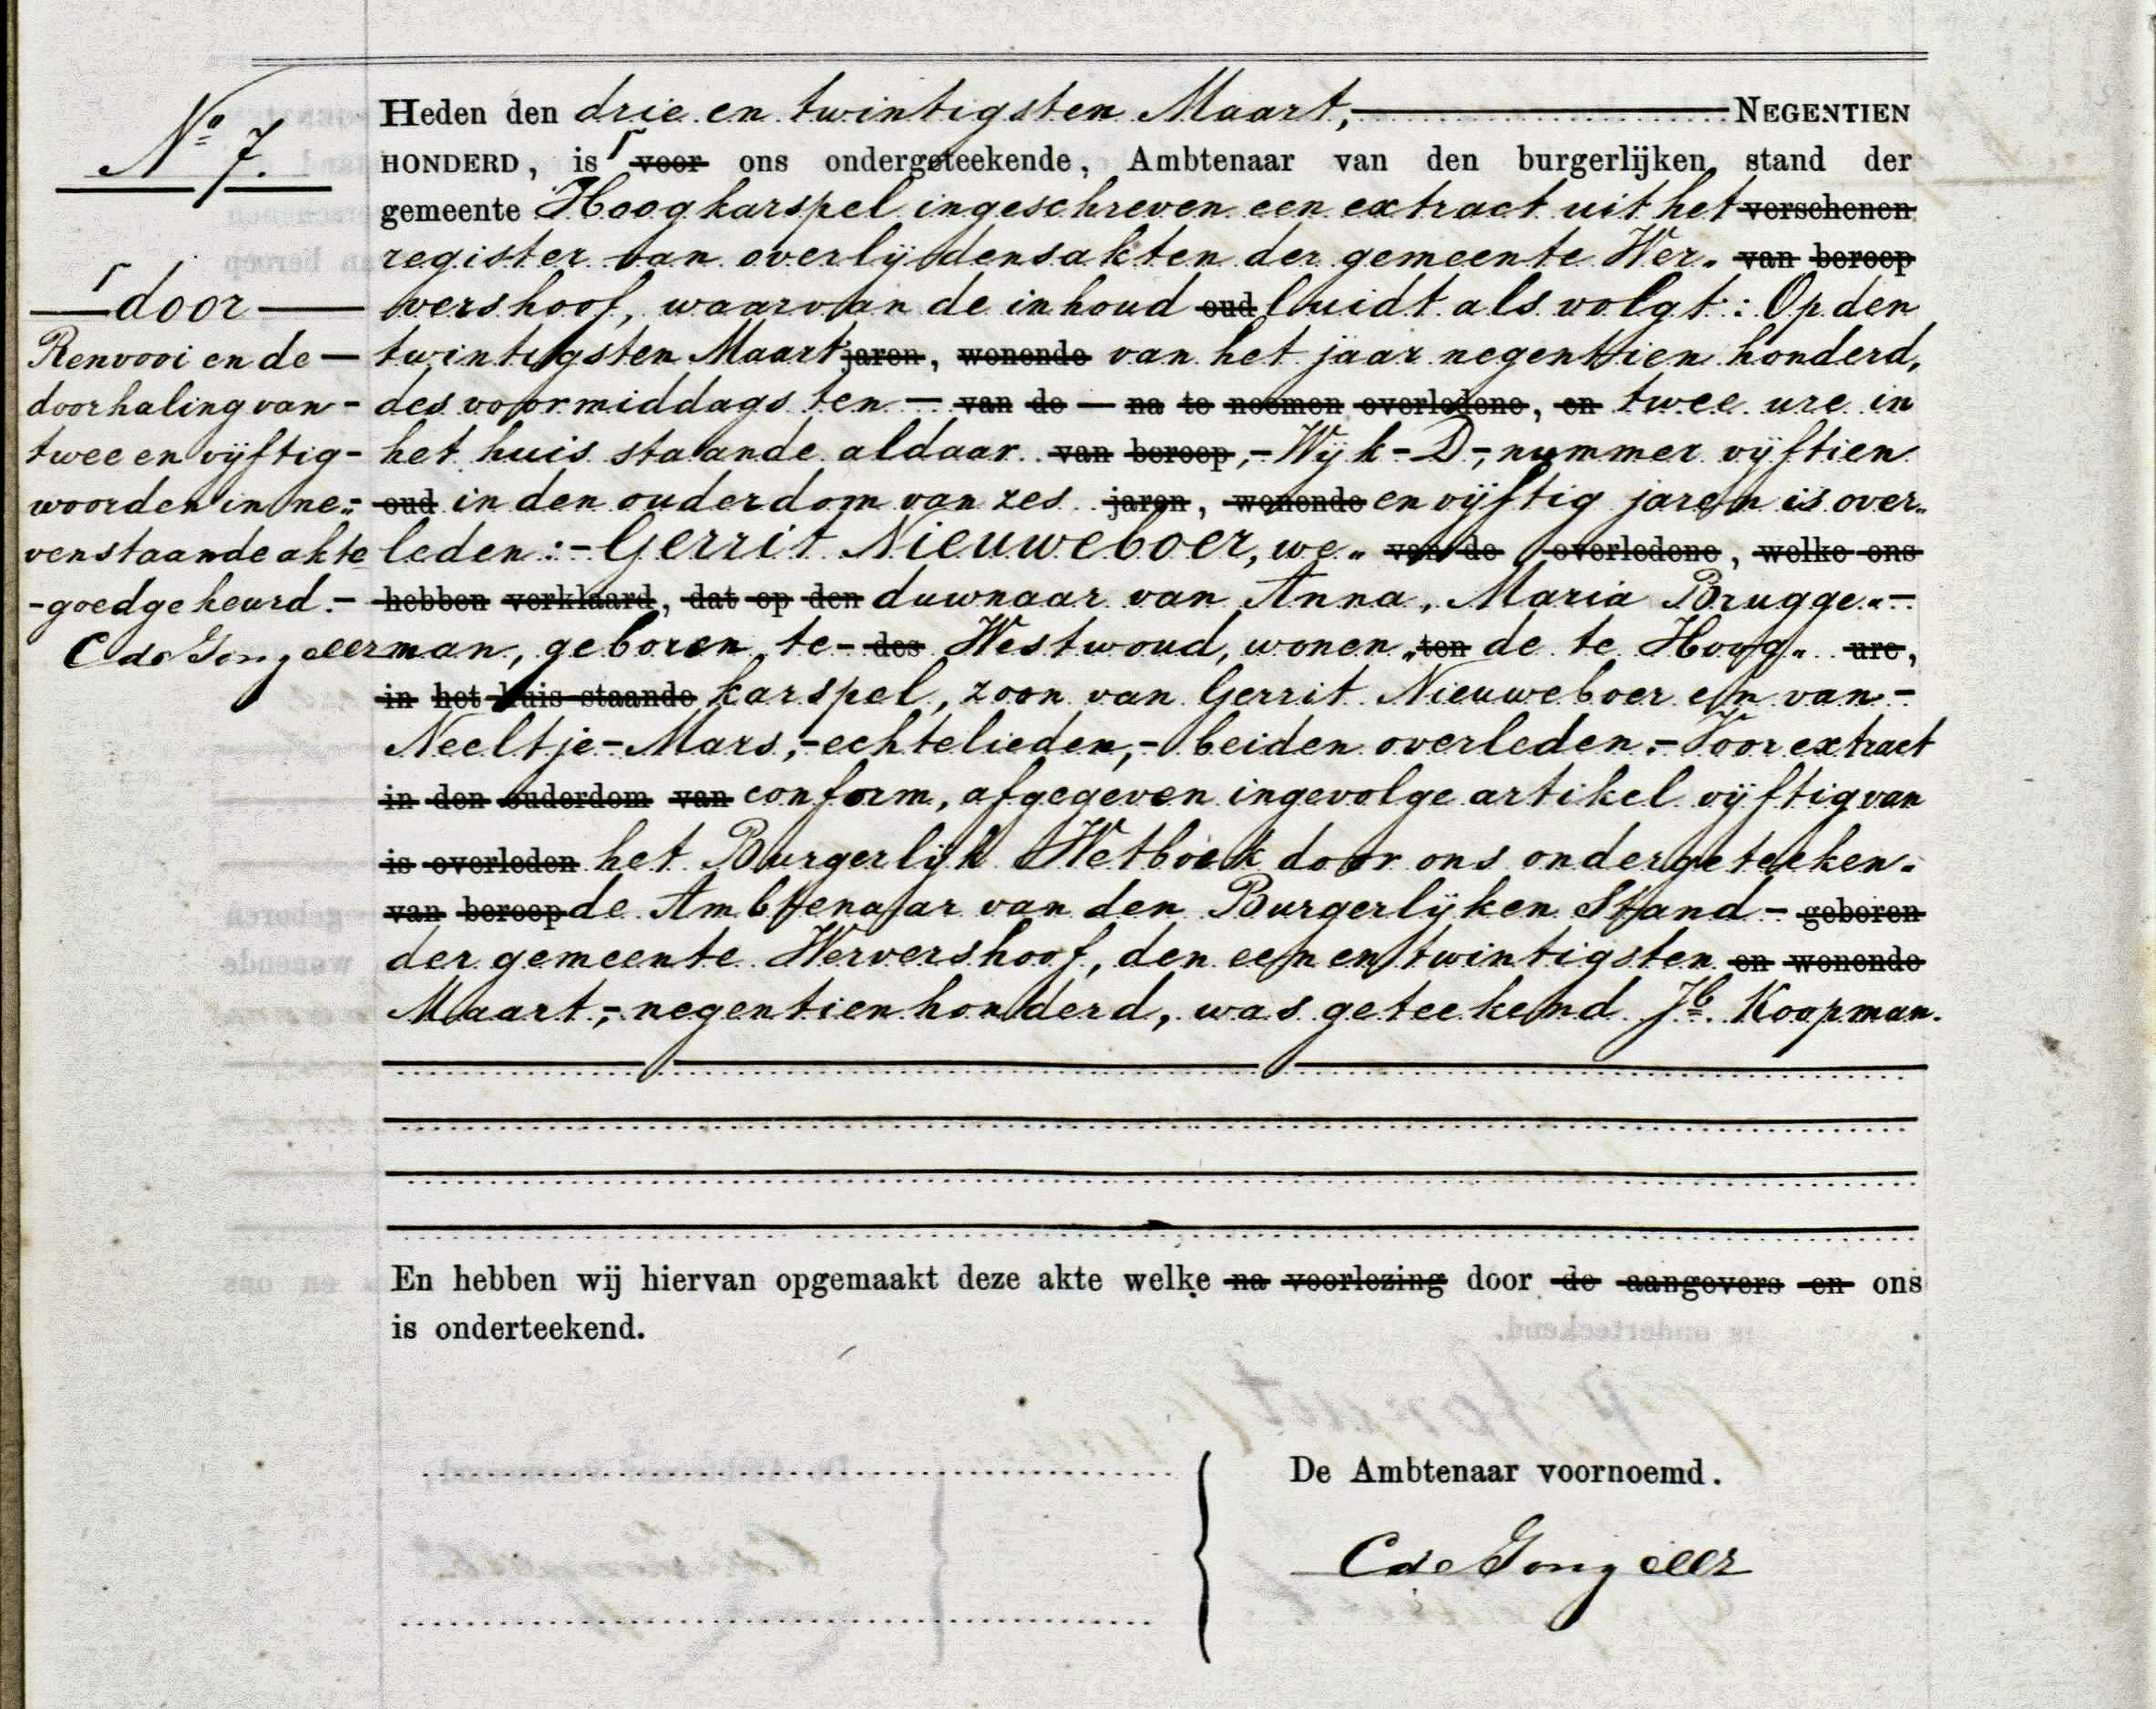 Nº 7.
Heden den drie en twintigsten Maart, NEGENTIEN
HONDERD, is ⌈ ~~voor~~ ons ondergeteekende, Ambtenaar van den burgerlijken stand der
gemeente Hoogkarspel ingeschreven een extract uit het ~~verschenen~~
register van overlijdensakten der gemeente Wer„ ~~van beroep~~
vershoof, waarvan de inhoud ~~oud~~ luidt als volgt: Op den
twintigsten Maart ~~jaren~~, ~~wonende~~ van het jaar negentien honderd,
des voormiddags ten – ~~van de~~ – ~~na te noemen overledene~~, ~~en~~ twee ure in
het huis staande aldaar ~~van beroep~~,- Wijk - D -, nummer vijftien
~~oud~~ in den ouderdom van zes ~~jaren~~, ~~wonende~~ en vijftig jaren is over„
leden :- Gerrit Nieuweboer, we„ ~~van de overledene~~, ~~welke ons~~
~~hebben verklaard~~, ~~dat op den~~ duwnaar van Anna, Maria Brugge„-
man, geboren te - ~~des~~ Westwoud, wonen„ ~~ten~~ de te Hoog„ ~~ure~~,
~~in het huis staande~~ karspel, zoon van Gerrit Nieuweboer en van -
Neeltje - Mars,- echtelieden,- beiden overleden.- Voor extract
~~in den ouderdom van~~ conform, afgegeven ingevolge artikel vijftig van
~~is overleden~~ het Burgerlijk Wetboek door ons ondergeteeken„
~~van beroep~~ de Ambtenaar van den Burgerlijken Stand - ~~geboren~~
der gemeente Wervershoof, den een en twintigsten ~~en wonende~~
Maart,- negentienhonderd, was geteekend Jb. Koopman.
⌈ door
Renvooi en de —
doorhaling van -
twee en vijftig -
woorden in ne„
venstaande akte
- goedgekeurd.-
C de Jong
En hebben wij hiervan opgemaakt deze akte welke ~~na voorlezing~~ door ~~de aangevers en~~ ons
is onderteekend.
De Ambtenaar voornoemd.
C de Jong